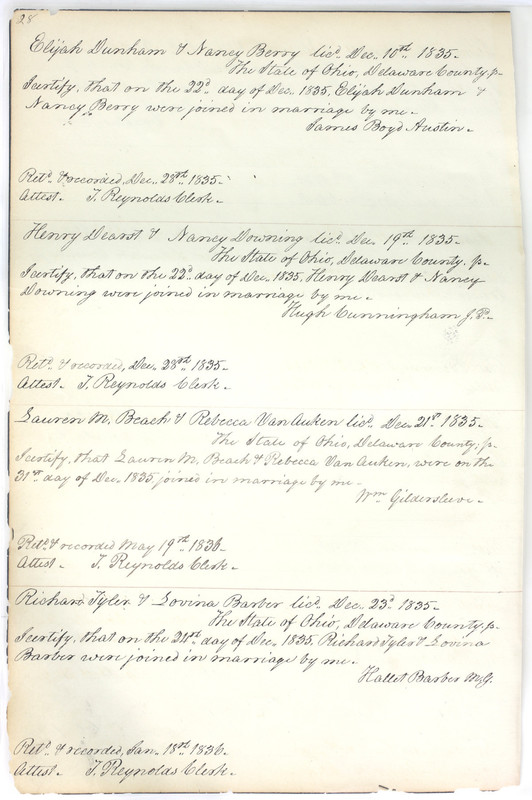 28
Elijah Dunham & Nancy Berry licd. Dec. 10th 1835.
The State of Ohio, Delaware County, p.
I certify, that on the 22d day of Dec. 1835, Elijah Dunham &
Nancy Berry were joined in marriage by me.
James Boyd Austin.
Retd. & recorded, Dec. 28th 1835.
Attest. T. Reynolds Clerk.
Henry Dearst & Nancy Downing licd. Dec. 19th 1835.
The State of Ohio, Delaware County, p.
I certify, that on the 22d day of Dec. 1835, Henry Dearst & Nancy
Downing were joined in marriage by me.
Hugh Cunningham J.P.
Retd. & recorded, Dec. 28th 1835.
Attest. T. Reynolds Clerk.
Lauren M. Beach & Rebecca Van Auken licd. Dec. 21st 1835.
The State of Ohio, Delaware County, p.
I certify, that Lauren M. Beach & Rebecca Van Auken, were on the
31st day of Dec. 1835 joined in marriage by me.
Wm Gildersleeve.
Retd. & recorded May 19th 1836.
Attest. T. Reynolds Clerk.
Richard Tyler & Lovina Barber licd. Dec. 23d 1835.
The State of Ohio, Delaware County, p.
I certify, that on the 24th day of Dec. 1835, Richard Tyler & Lovina
Barber were joined in marriage by me.
Hallet Barber M.G.
Retd. & recorded, Jan. 18th 1836.
Attest. T. Reynolds Clerk.